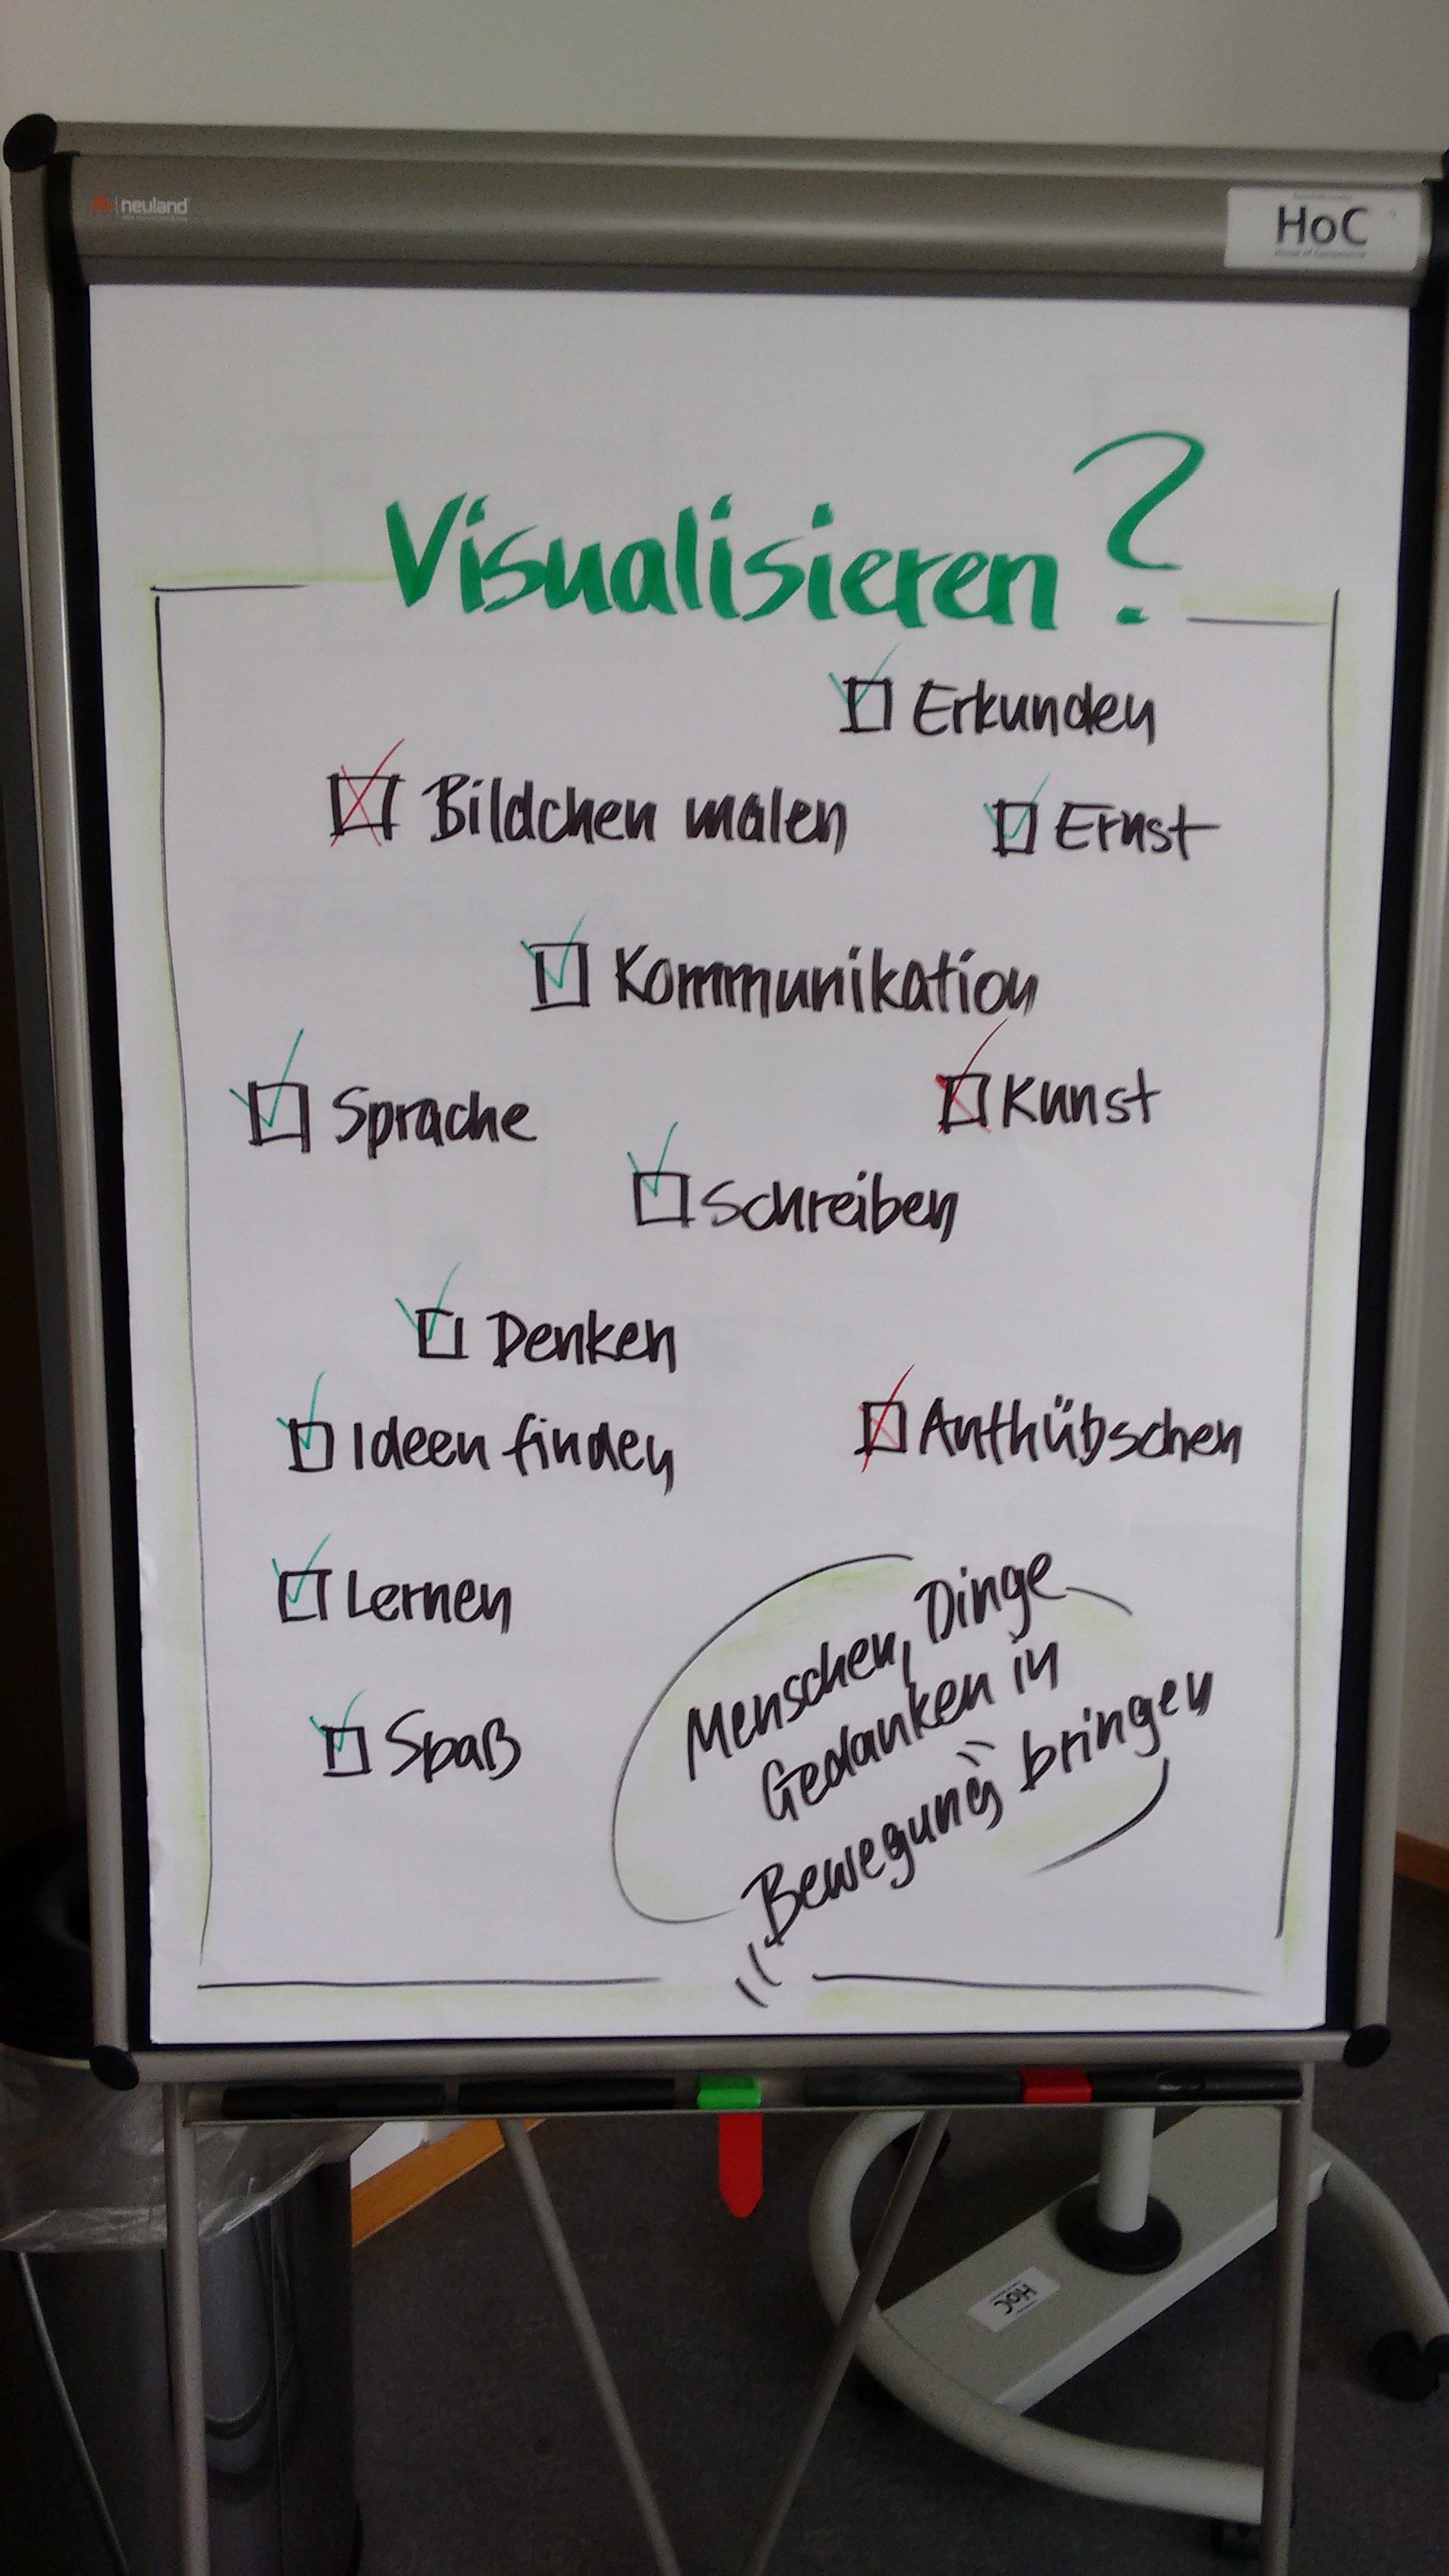 neuland
HoC
House of Competence
Visualisieren?
Erkunden
Bildchen malen
Ernst
Kommunikation
Sprache
Kunst
Schreiben
Denken
Ideen finden
Aufhübschen
Lernen
Spaß
Menschen, Dinge
Gedanken in
Bewegung bringen
HoC